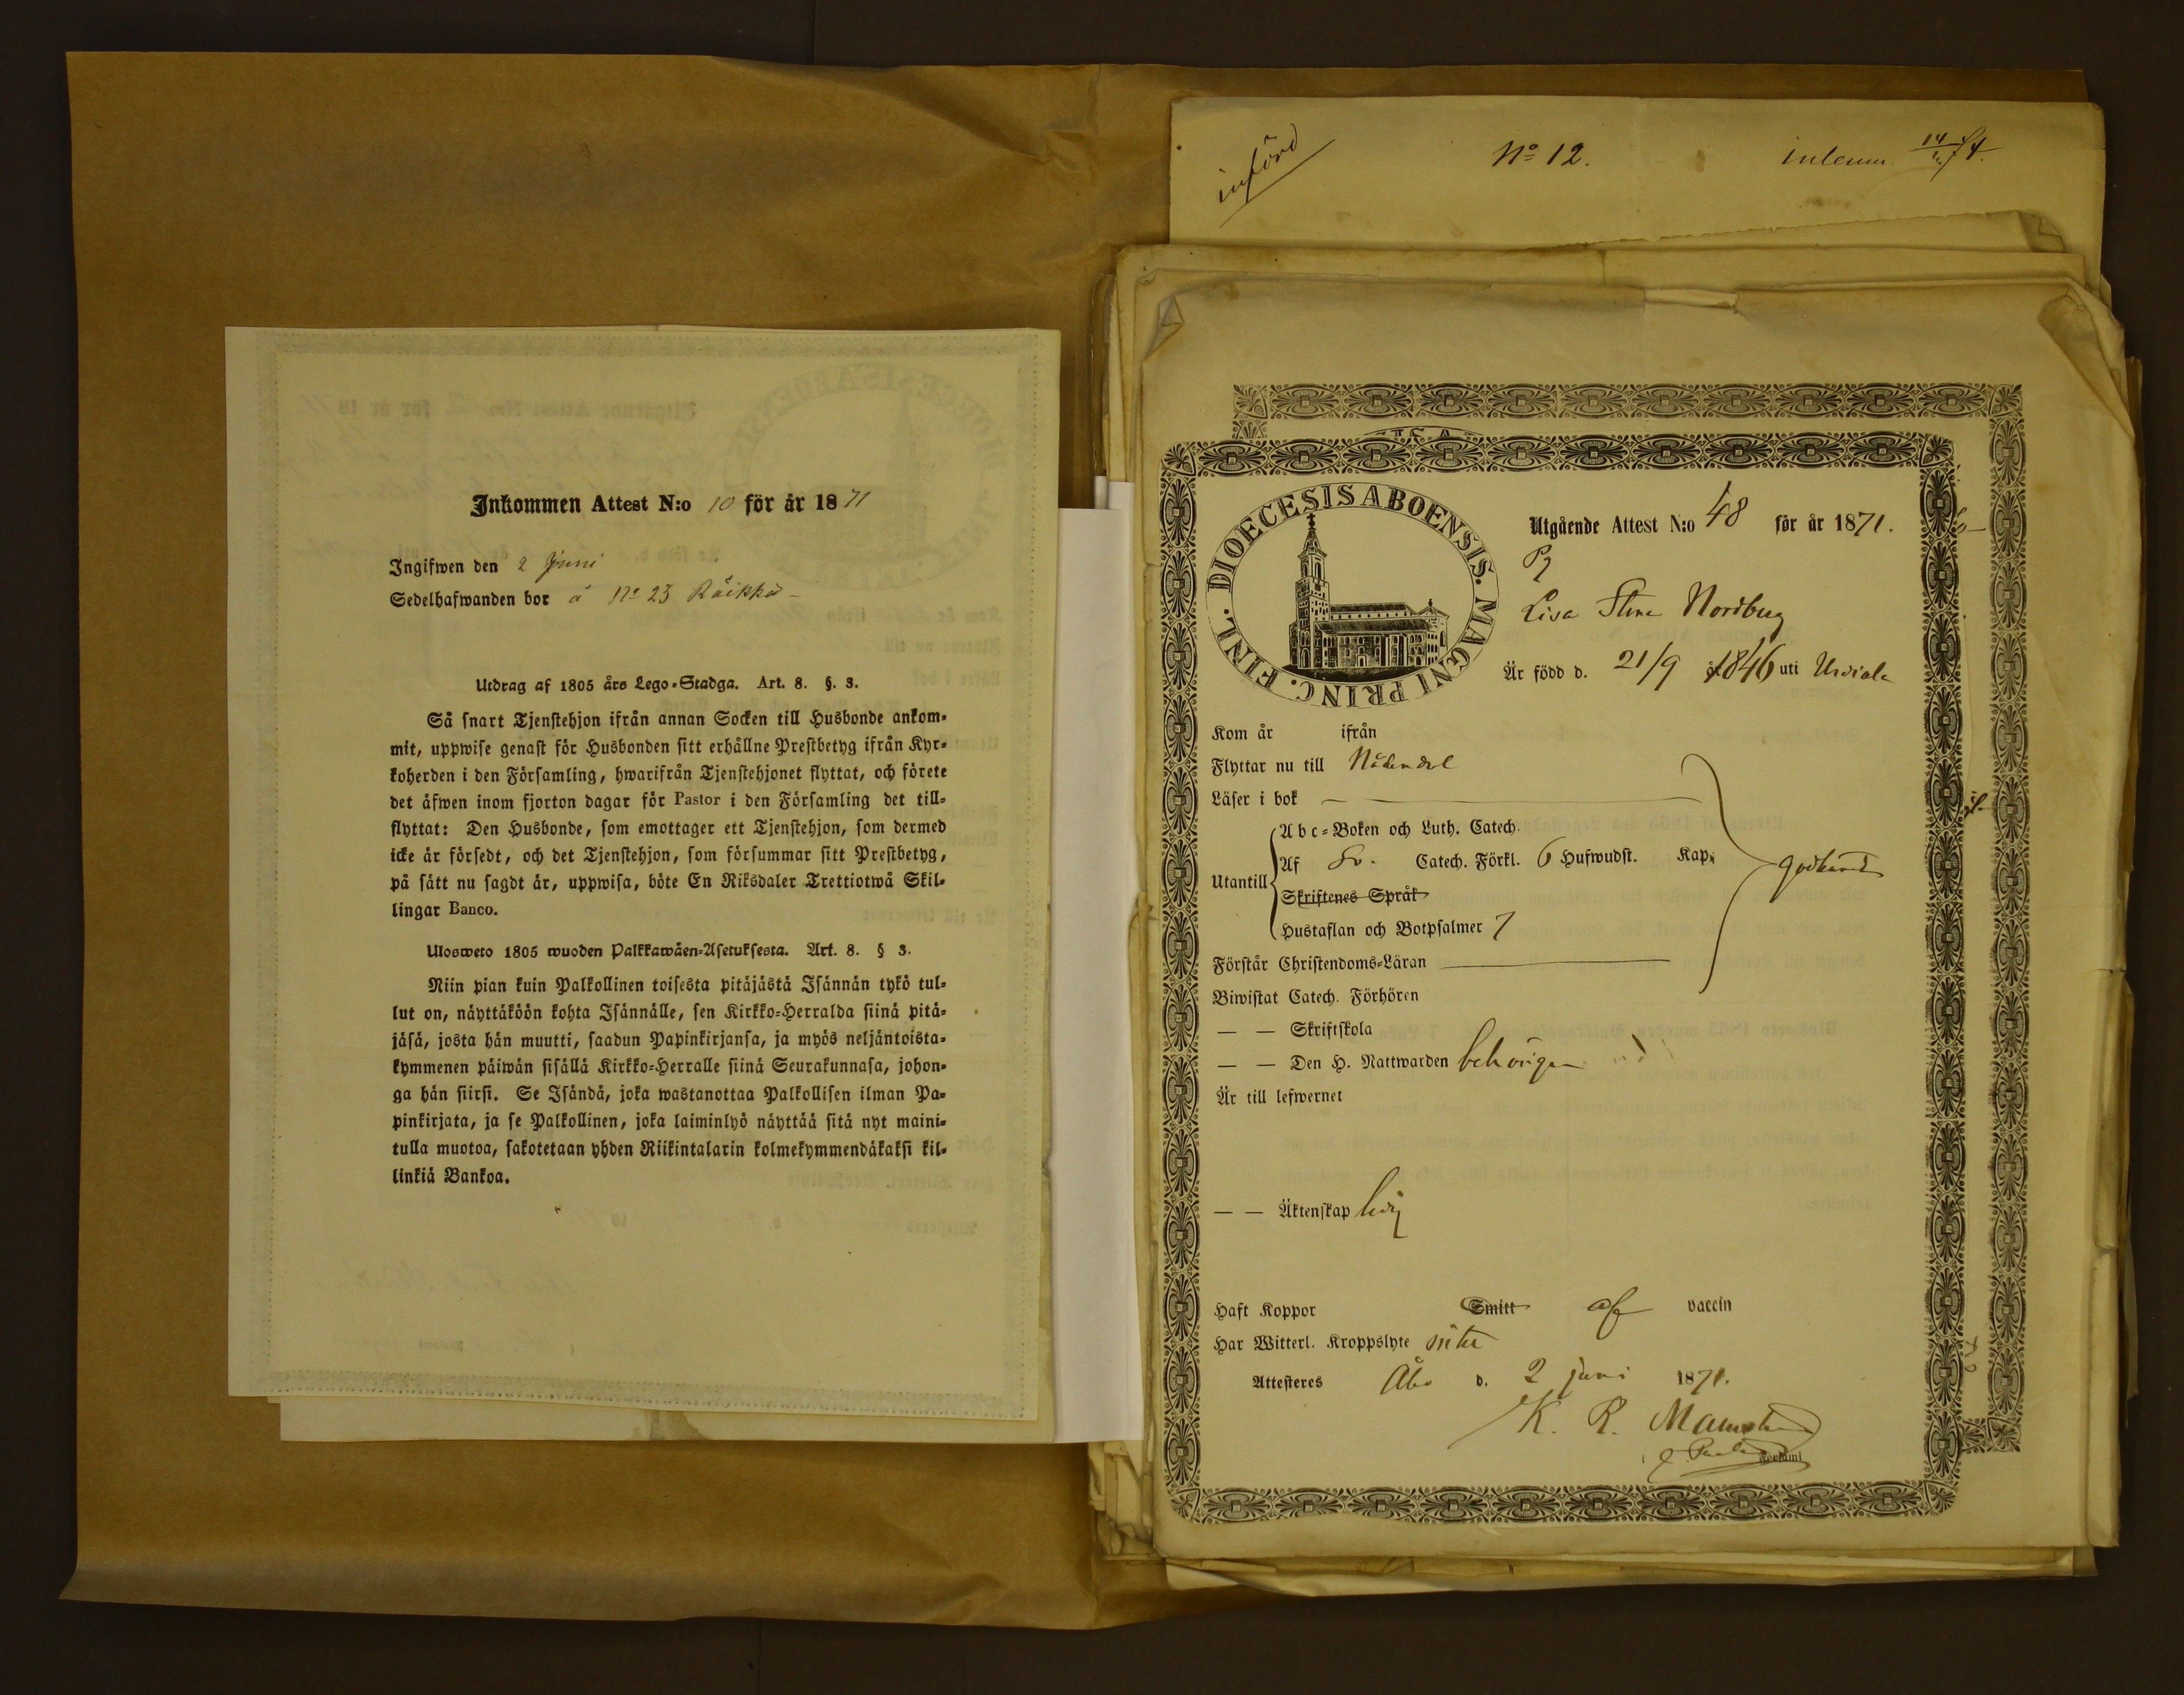 Inkommen Attest N:o 10 för år 1871
Ingifwen den 2 Juni
Sedelhafwanden bor å No 23 Räikkä
Utdrag af 1805 års Lego-Stadga. Art. 8. §. 3.
Så snart Tjenstehjon ifrån annan Socken till Husbonde ankom-
mit, uppwise genast för Husbonden sitt erhållne Prestbetyg ifrån Kyr-
koherden i den Församling, hwarifrån Tjenstehjonet flyttat, och förete
det äfwen inom fjorton dagar för Pastor i den Församling det till-
flyttat: Den Husbonde, som emottager ett Tjenstehjon, som dermed
icke är försedt, och det Tjenstehjon, som försummar sitt Prestbetyg,
på sätt nu sagdt är, uppwisa, böte En Riksdaler Trettiotwå Skil-
lingar Banco.
Ulosweto 1805 wuoden Palkkawäen-Asetuksesta. Art. 8. § 3.
Niin pian kuin Palkollinen toisesta pitäjästä Isännän tykö tul-
lut on, näyttäköön kohta Isännälle, sen Kirkko-Herralda siinä pitä-
jäsä, josta hän muutti, saadun Papinkirjansa, ja myös neljäntoista-
kymmenen päiwän sisällä Kirkko-Herralle siinä Seurakunnasa, johon-
ga hän siirsi. Se Isändä, joka wastanottaa Palkollisen ilman Pa-
pinkirjata, ja se Palkollinen, joka laiminlyö näyttää sitä nyt maini-
tulla muotoa, sakotetaan yhden Riikintalarin kolmekymmendäkaksi kil-
linkiä Bankoa.
införd No 12. inlemn. 74.
DIOECESIS ABOENSIS. MAGNI PRINC. FINL.
Utgående Attest N:o 48 för år 1871.
Pig
Lisa Stina Nordberg
Är född d. 21/9 1846 uti Urdiala
Kom år ifrån
Flyttar nu till Nådendal
Läser i bok
Abc-Boken och Luth. Catech.
Utantill Af Sv. Catech. Förkl. 6 Hufwudst. Kap. godkänd
Skriftenes Språk
Hustaflan och Botpsalmer 7
Förstår Christendoms-Läran
Biwistat Catech. Förhören
— — Skriftskola
— — Den H. Nattwarden behörigen
Är till lefwernet
— — Äktenskap ledig
Haft Koppor Smitt af vaccin
Har Witterl. Kroppslyte intet
Attesteres Åbo d. 2 juni 1871.
K. R. Malmström